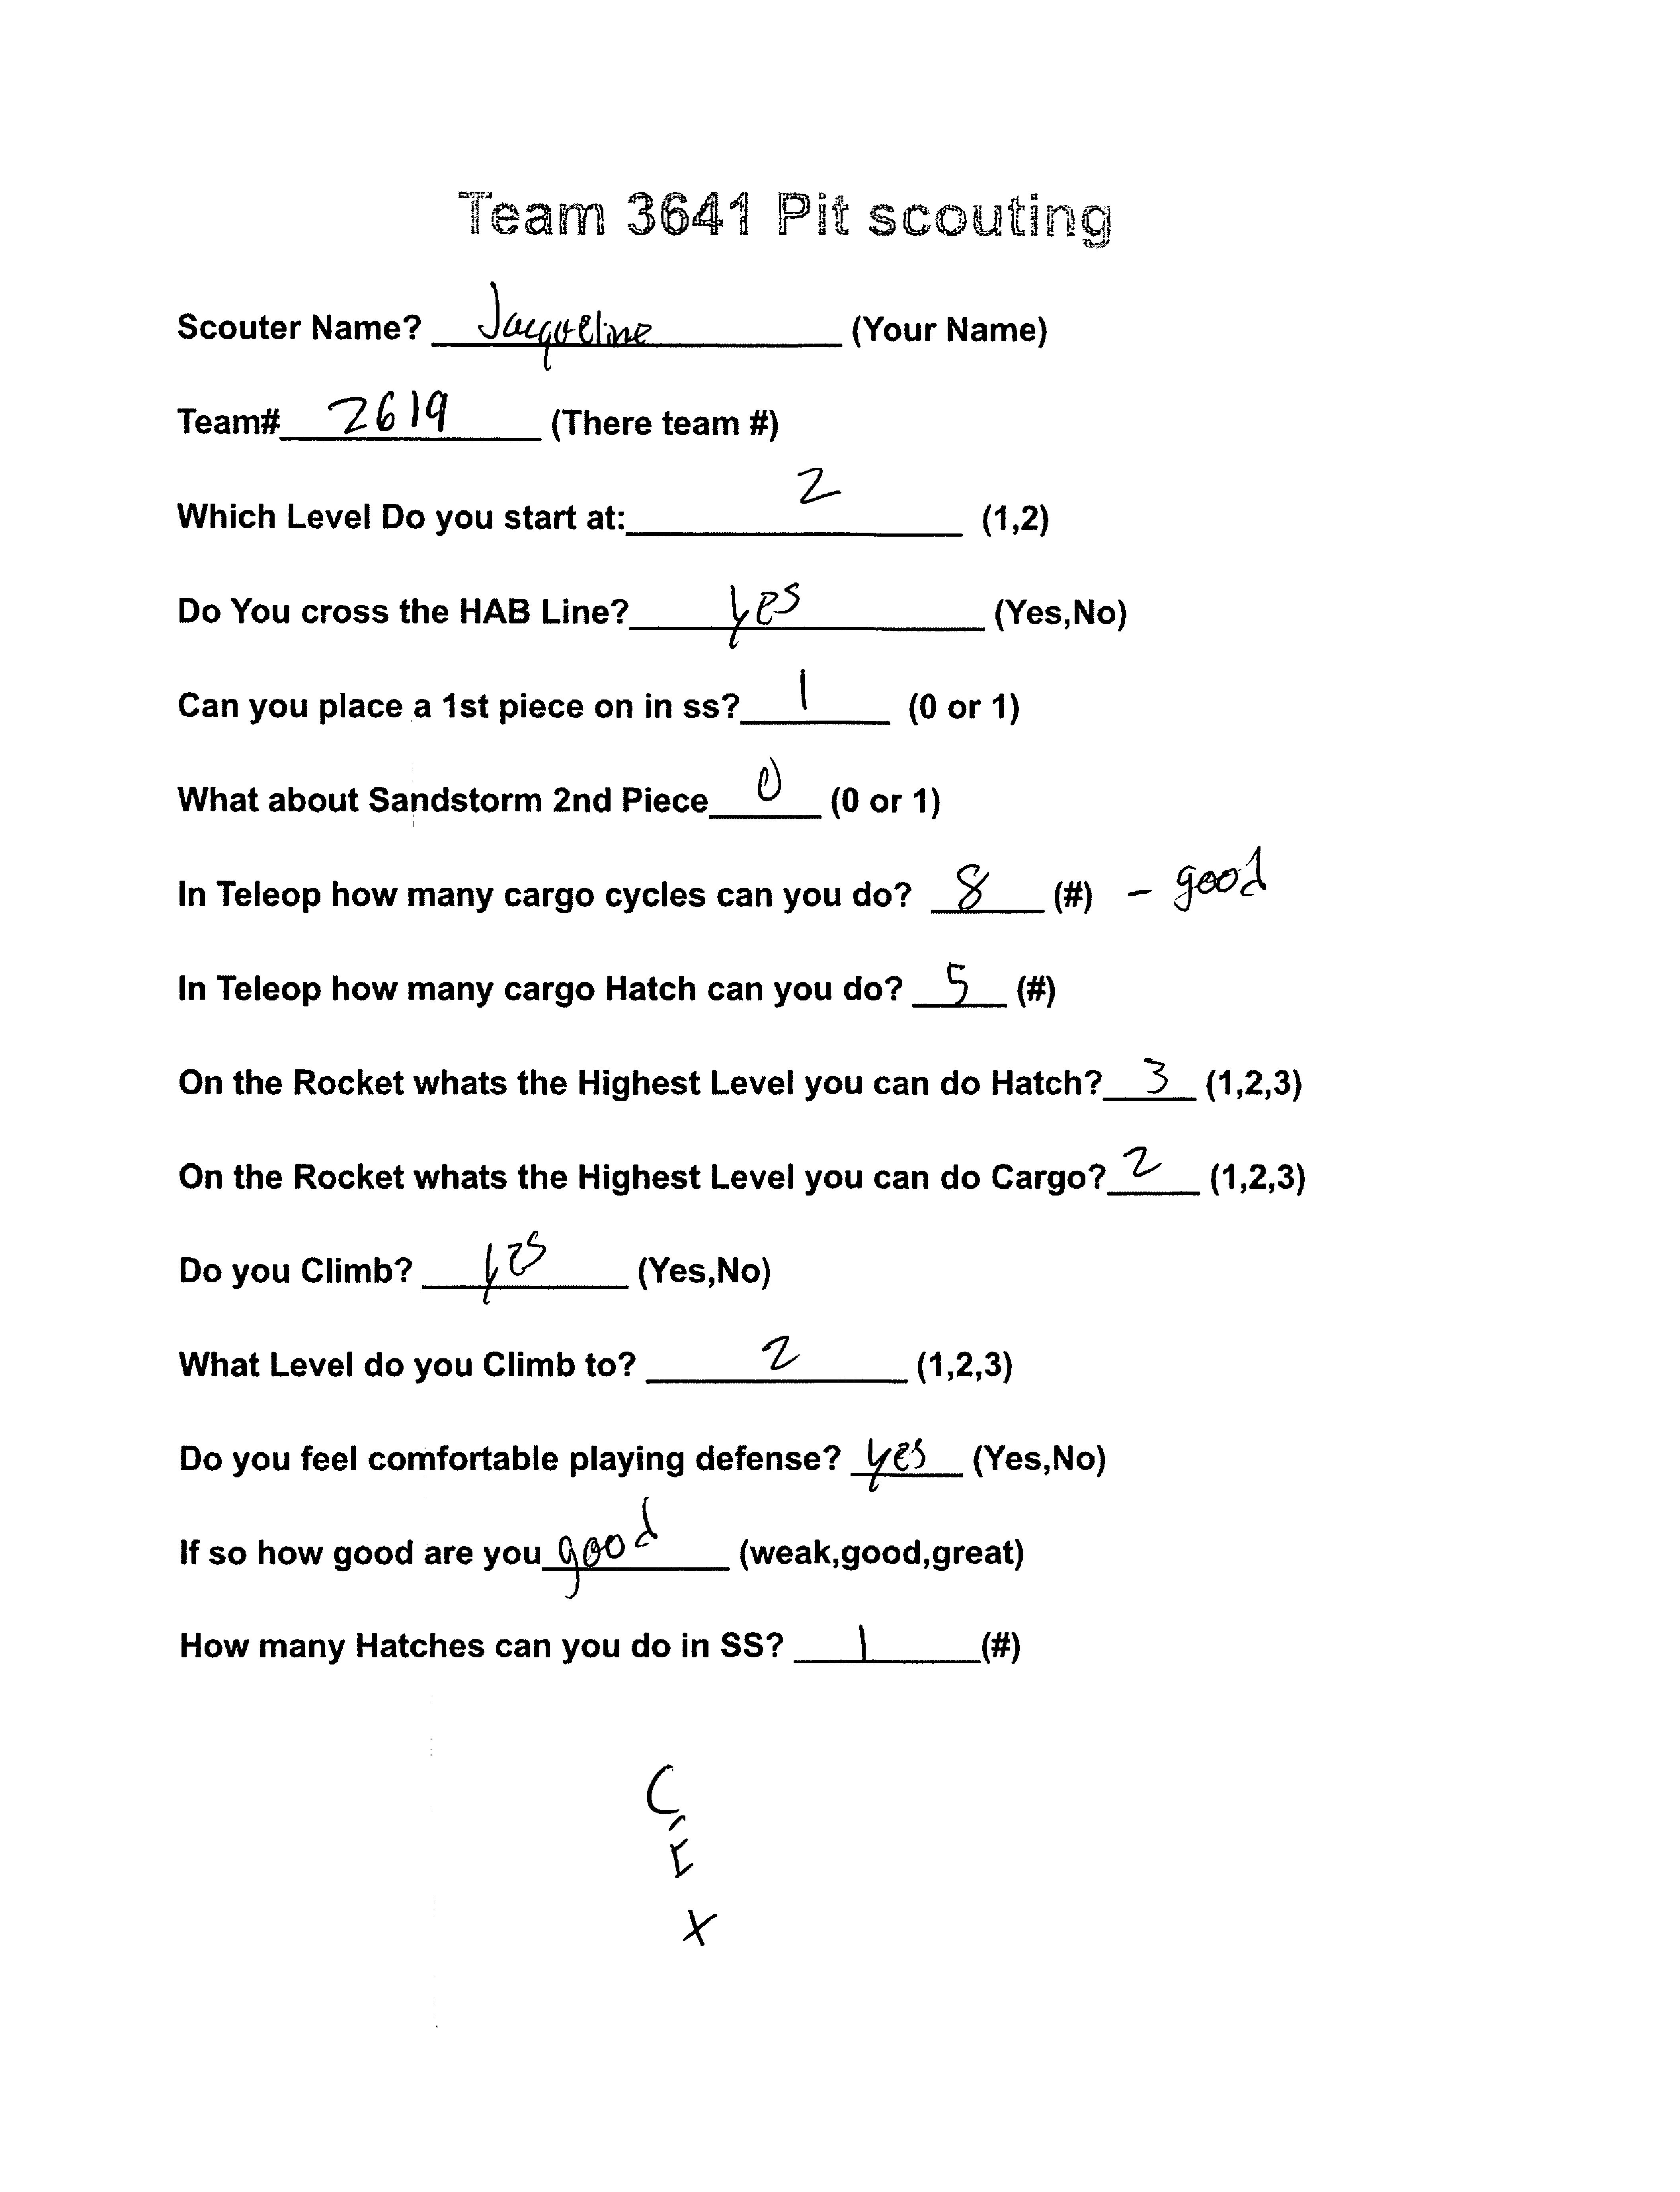 Team 3641 Pit scouting
Scouter Name? Jacqueline (Your Name)
Team# 2619 (There team #)
Which Level Do you start at: 2 (1,2)
Do You cross the HAB Line? yes (Yes,No)
Can you place a 1st piece on in ss? 1 (0 or 1)
What about Sandstorm 2nd Piece 0 (0 or 1)
In Teleop how many cargo cycles can you do? 8 (#) - good
In Teleop how many cargo Hatch can you do? 5 (#)
On the Rocket whats the Highest Level you can do Hatch? 3 (1,2,3)
On the Rocket whats the Highest Level you can do Cargo? 2 (1,2,3)
Do you Climb? yes (Yes,No)
What Level do you Climb to? 2 (1,2,3)
Do you feel comfortable playing defense? yes (Yes,No)
If so how good are you good (weak,good,great)
How many Hatches can you do in SS? 1 (#)
C
E
X